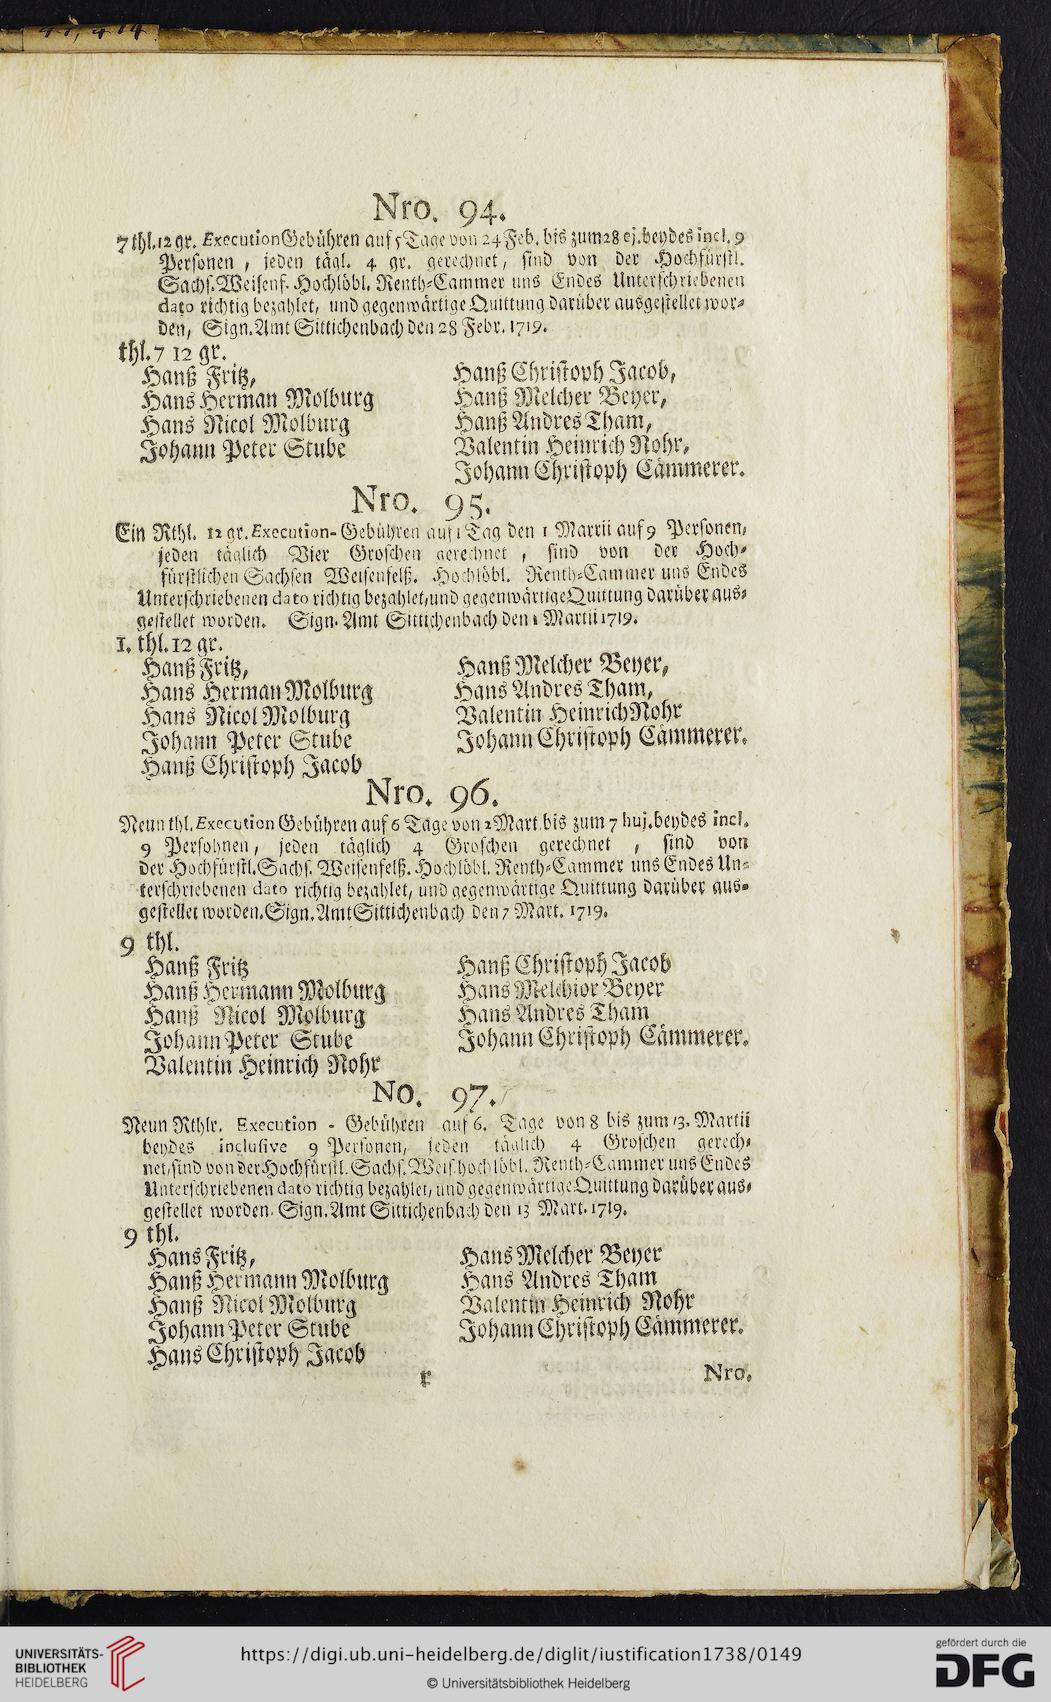 Nro. 94.
7 thl. 12 gr. Execution Gebühren auf 5 Tage von 24 Feb. bis zum 28 ej. beydes incl. 9
Personen, jeden tägl. 4 gr. gerechnet, sind von der Hochfürstl.
Sachs. Weisenf. Hochlöbl. Renth-Cammer uns Endes Unterschriebenen
dato richtig bezahlet, und gegenwärtige Quittung darüber ausgestellet wor-
den, Sign. Amt Sittichenbach den 28 Febr. 1719.
thl. 7 12 gr.
Hanß Fritz,
Hans Herman Molburg
Hans Nicol Molburg
Johann Peter Stube
Hanß Christoph Jacob,
Hanß Melcher Beyer,
Hanß Andres Tham,
Valentin Heinrich Rohr,
Johann Christoph Cämmerer.
Nro. 95.
Ein Rthl. 12 gr. Execution-Gebühren auf 1 Tag den 1 Martii auf 9 Personen,
jeden täglich Vier Groschen gerechnet, sind von der Hoch-
fürstlichen Sachsen Weisenfelß. Hochlöbl. Renth-Cammer uns Endes
Unterschriebenen dato richtig bezahlet, und gegenwärtige Quittung darüber aus-
gestellet worden. Sign. Amt Sittichenbach den 1 Martii 1719.
1. thl. 12 gr.
Hanß Fritz,
Hans Herman Molburg
Hans Nicol Molburg
Johann Peter Stube
Hanß Christoph Jacob
Hanß Melcher Beyer,
Hans Andres Tham,
Valentin Heinrich Rohr
Johann Christoph Cämmerer.
Nro. 96.
Neun thl. Execution Gebühren auf 6 Tage von 2 Mart. bis zum 7 huj. beydes incl.
9 Persohnen, jeden täglich 4 Groschen gerechnet, sind von
der Hochfürstl. Sachs. Weisenfelß. Hochlöbl. Renth-Cammer uns Endes Un-
terschriebenen dato richtig bezahlet, und gegenwärtige Quittung darüber aus-
gestellet worden. Sign. Amt Sittichenbach den 7 Mart. 1719.
9 thl.
Hanß Fritz
Hanß Hermann Molburg
Hanß Nicol Molburg
Johann Peter Stube
Valentin Heinrich Rohr
Hanß Christoph Jacob
Hans Melchior Beyer
Hans Andres Tham
Johann Christoph Cämmerer.
No. 97.
Neun Rthlr. Execution - Gebühren auf 6. Tage von 8 bis zum 13. Martii
beydes inclusive 9 Personen, jeden täglich 4 Groschen gerech-
net, sind von der Hochfürstl. Sachs. Weis. hochlöbl. Renth-Cammer uns Endes
Unterschriebenen dato richtig bezahlet, und gegenwärtige Quittung darüber aus-
gestellet worden. Sign. Amt Sittichenbach den 13 Mart. 1719.
9 thl.
Hans Fritz,
Hanß Hermann Molburg
Hanß Nicol Molburg
Johann Peter Stube
Hans Christoph Jacob
Hans Melcher Beyer
Hans Andres Tham
Valentin Heinrich Rohr
Johann Christoph Cämmerer.
Nro.
UNIVERSITÄTS-
BIBLIOTHEK
HEIDELBERG
https://digi.ub.uni-heidelberg.de/diglit/iustification1738/0149
© Universitätsbibliothek Heidelberg
gefördert durch die
DFG